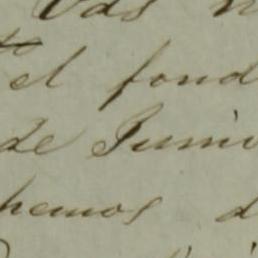 Vds
el fond
de Junio
hemos d